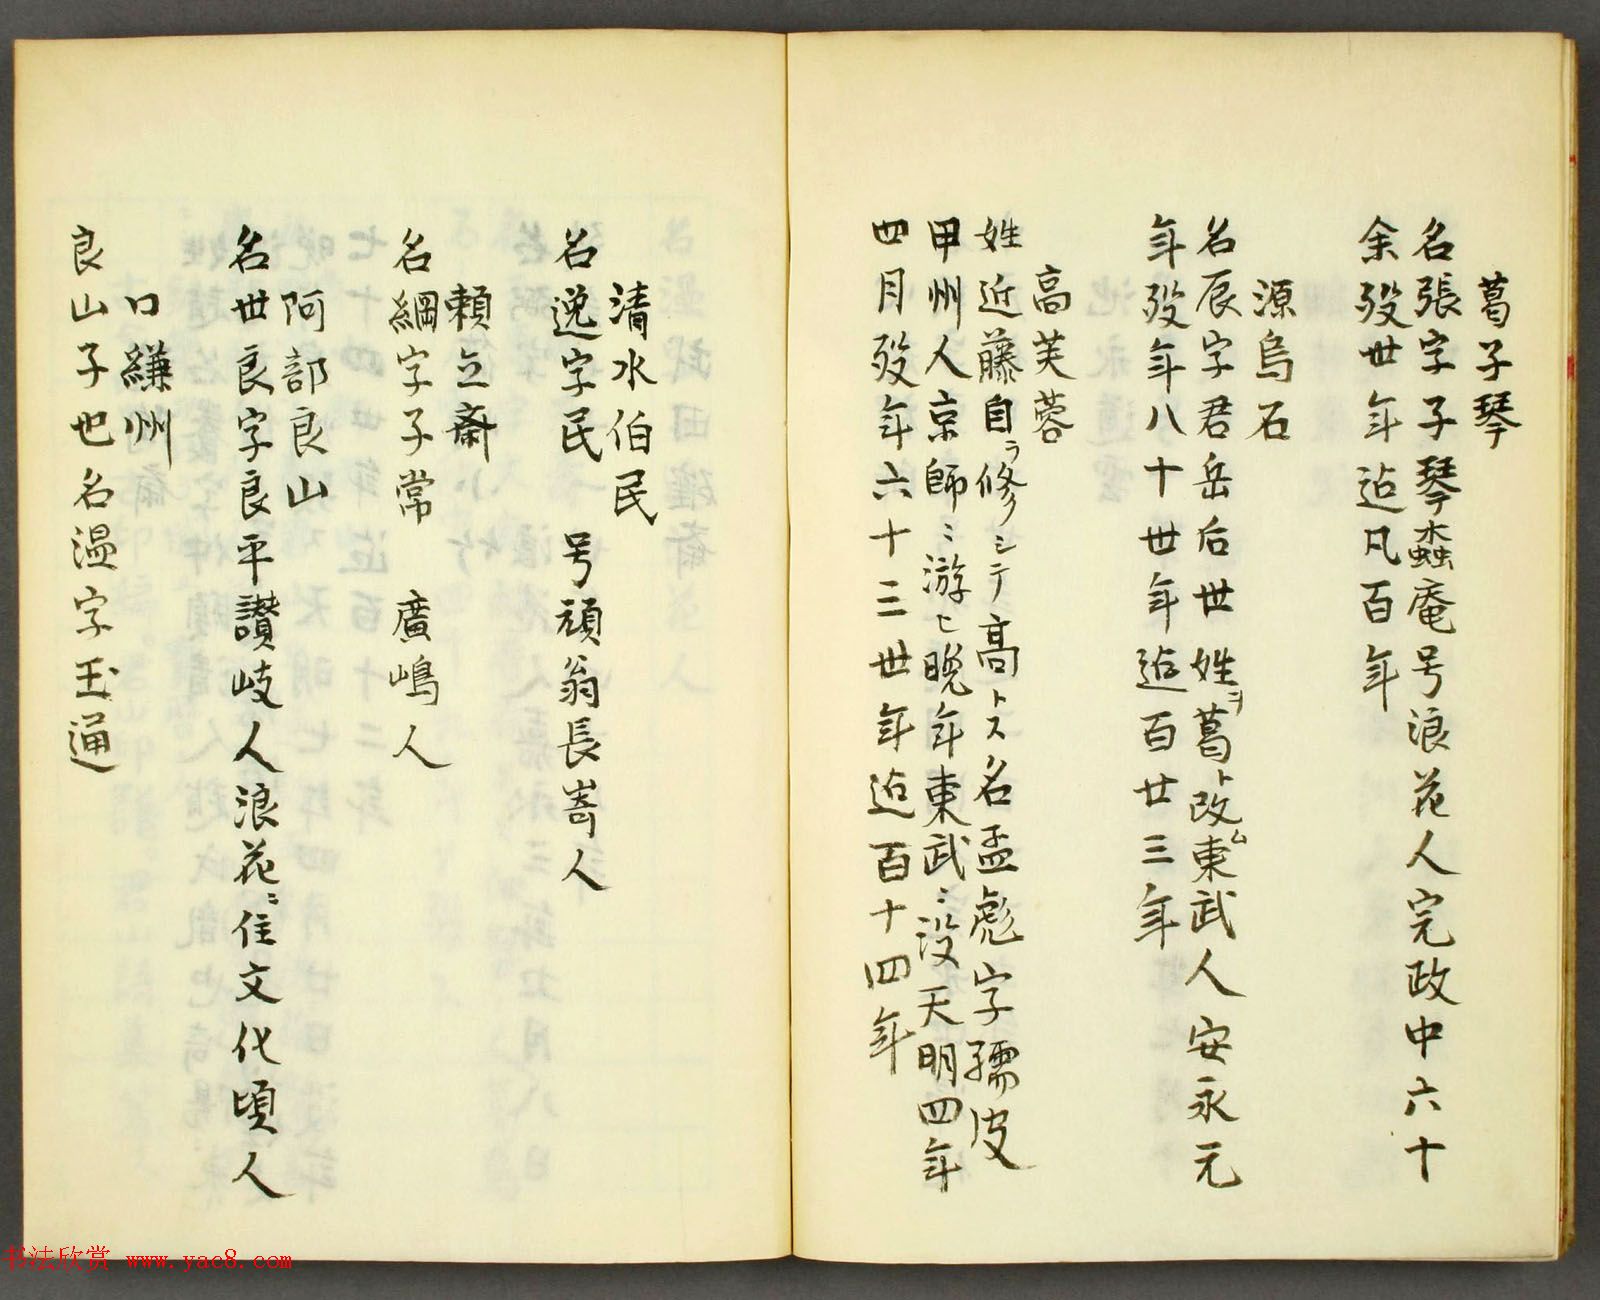 葛子琴
名張字子琴螙庵号浪花人完政中六十
余歿世年迠凡百年
源烏石
名辰字君岳后世姓ヲ葛ト改ム東武人安永元
年歿年八十世年迠百廿三年
高芙蓉
姓近藤自ラ修メシテ高トス名孟彪字孺皮
甲州人京師ニ游ヒ晩年東武ニ没天明四年
四月歿年六十三世年迠百十四年
清水伯民
名逸字民 号頑翁長嵜人
頼立斎
名綱字子常 廣嶋人
阿部良山
名世良字良平讃岐人浪花ニ住文化頃人
口縑州
良山子也名温字玉通
书法欣赏 www.yac8.com